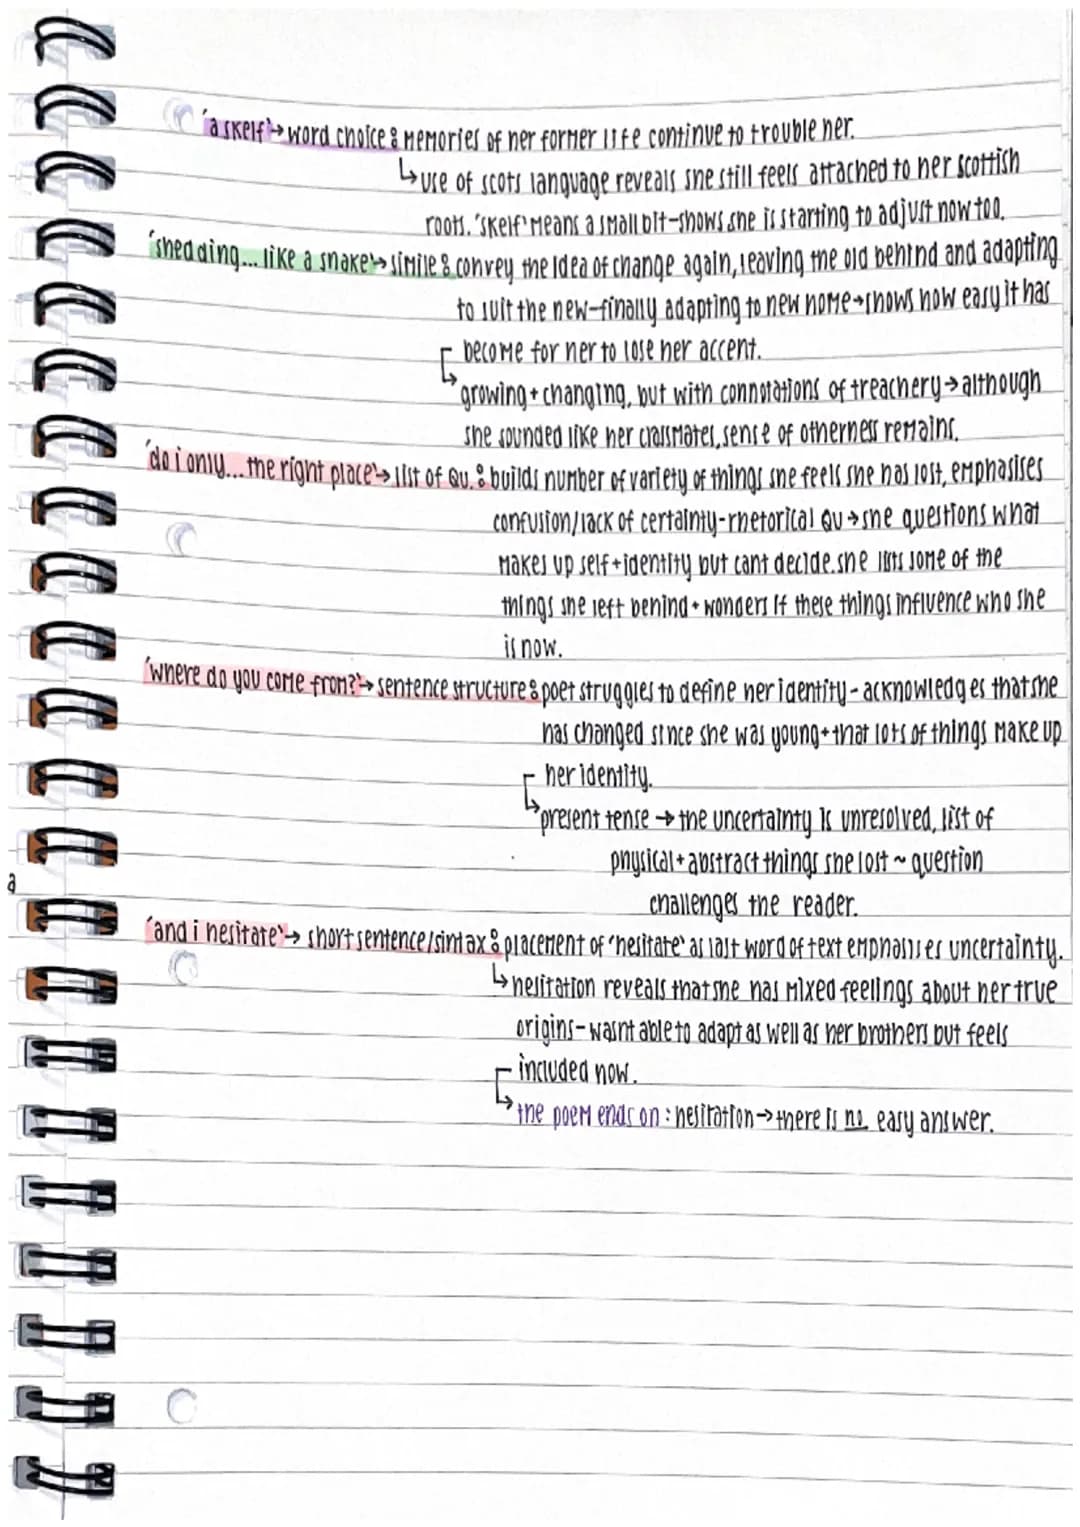 'a skelf' → word choice & memories of her former life continue to trouble her.
↳ use of scots language reveals she still feels attached to her scottish
roots. 'skelf' means a small bit-shows she is starting to adjust now too.
'shedding... like a snake' → simile & convey the idea of change again, leaving the old behind and adapting
to suit the new-finally adapting to new home → shows how easy it has
become for her to lose her accent.
↳ growing + changing, but with connotations of treachery → although
she sounded like her classmates, sense of otherness remains.
'do i only... the right place' → list of Qu. & builds number of variety of things she feels she has lost, emphasises
confusion/lack of certainty-rhetorical Qu → she questions what
makes up self + identity but cant decide. she lists some of the
things she left behind + wonders if these things influence who she
is now.
'where do you come from?' → sentence structure & poet struggles to define her identity - acknowledges that she
has changed since she was young + that lots of things make up
her identity.
↳ present tense → the uncertainty is unresolved, list of
physical + abstract things she lost ~ question
challenges the reader.
a
'and i hesitate' → short sentence/sintax & placement of 'hesitate' as last word of text emphasises uncertainty.
↳ hesitation reveals that she has mixed feelings about her true
origins- wasnt able to adapt as well as her brothers but feels
included now.
↳ the poem ends on : hesitation → there is no easy answer.